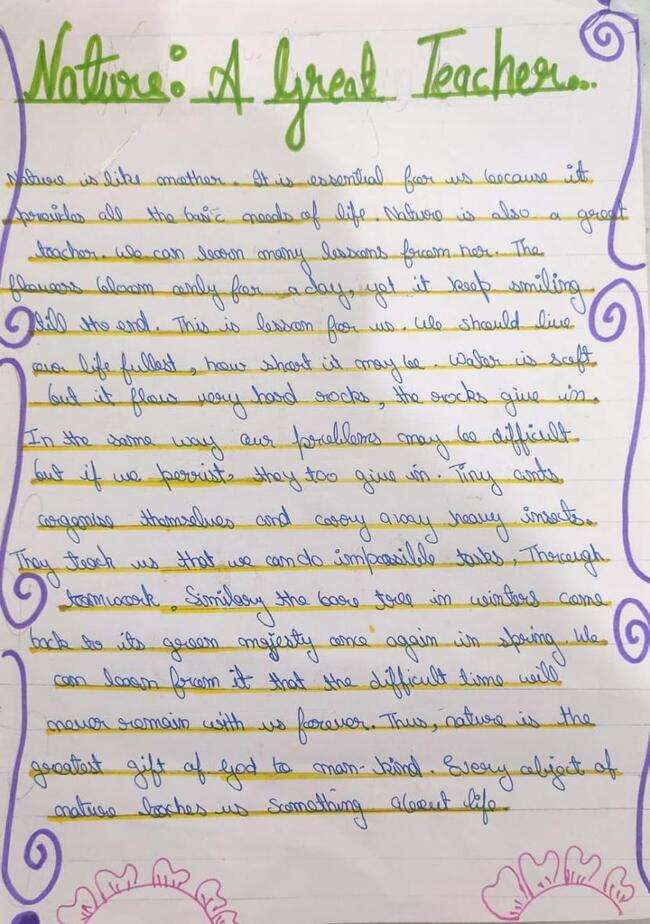 Nature: A Great Teacher...
Nature is like mother. It is essential for us because it
provides all the basic needs of life. Nature is also a great
teacher. We can learn many lessons from her. The
flowers bloom only for a day, yet it keep smiling
till the end. This is lesson for us. We should live
our life fullest, how short it may be. Water is soft
but it flows very hard rocks, the rocks give in.
In the same way our problems may be difficult
but if we persist, they too give in. Tiny ants
organise themselves and carry away heavy insects.
They teach us that we can do impossible tasks, Through
teamwork. Similary the bare tree in winters came
back to its green majesty once again in spring. We
can learn from it that the difficult time will
never remain with us forever. Thus, nature is the
greatest gift of God to man-kind. Every object of
nature teaches us something about life.